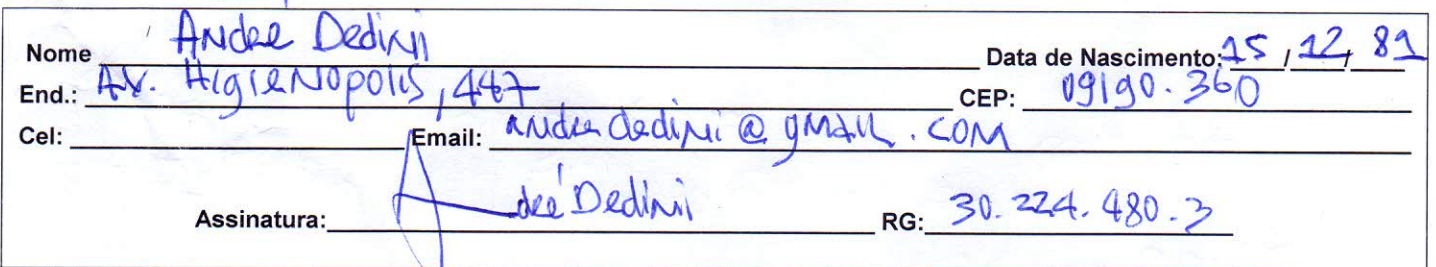 Nome André Dedini Data de Nascimento: 15 / 12 / 81
End.: Av. Higienopolis, 447 CEP: 09190.360
Cel: Email: andrededini@gmail.com
Assinatura: André Dedini RG: 30.224.480-3